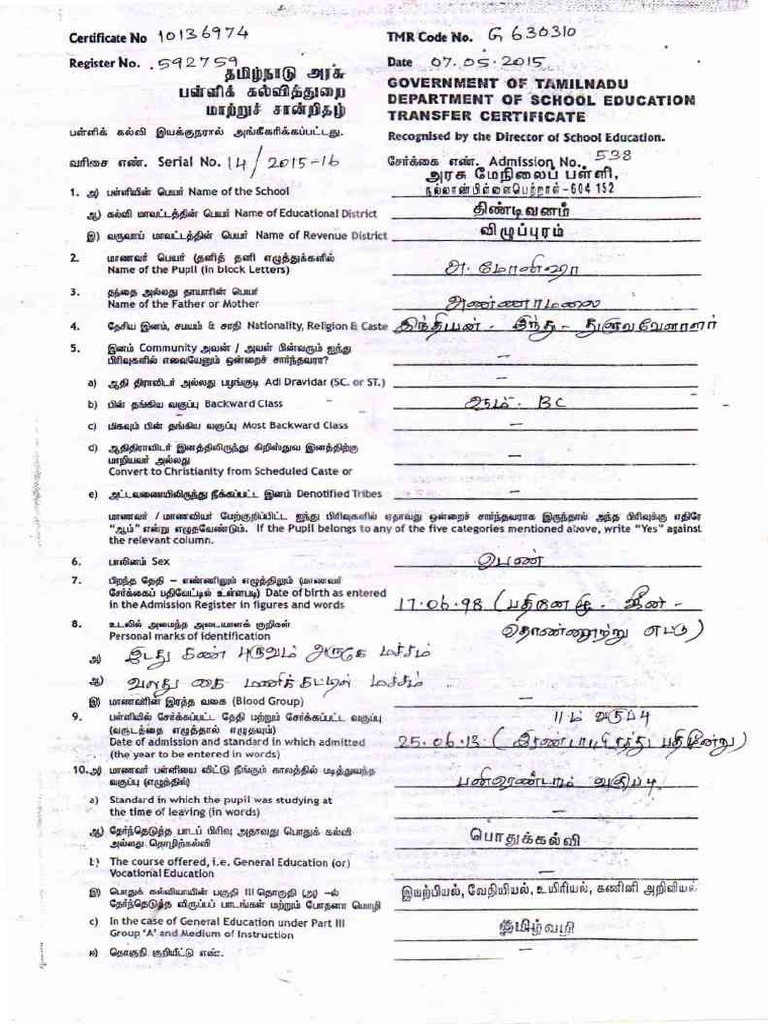 Certificate No 10136974
TMR Code No. G 630310
Register No. 592759
Date 07.05.2015
தமிழ்நாடு அரசு
பள்ளிக் கல்வித்துறை
மாற்றுச் சான்றிதழ்
GOVERNMENT OF TAMILNADU
DEPARTMENT OF SCHOOL EDUCATION
TRANSFER CERTIFICATE
பள்ளிக் கல்வி இயக்குநரால் அங்கீகரிக்கப்பட்டது.
Recognised by the Director of School Education.
வரிசை எண். Serial No. 14/2015-16
சேர்க்கை எண். Admission No. 538
1. அ) பள்ளியின் பெயர் Name of the School
அரசு மேனிலைப் பள்ளி,
நல்லாண்பிள்ளைபெற்றாள்-604 152
ஆ) கல்வி மாவட்டத்தின் பெயர் Name of Educational District திண்டிவனம்
இ) வருவாய் மாவட்டத்தின் பெயர் Name of Revenue District விழுப்புரம்
2. மாணவர் பெயர் (தனித் தனி எழுத்துக்களில்
Name of the Pupil (in block Letters) அ. மோனிஷா
3. தந்தை அல்லது தாயாரின் பெயர்
Name of the Father or Mother அண்ணாமலை
4. தேசிய இனம், சமயம் & சாதி Nationality, Religion & Caste இந்தியன் - இந்து - துளுவவேளாளர்
5. இனம் Community அவன் / அவள் பின்வரும் ஐந்து
பிரிவுகளில் எவையேனும் ஒன்றைச் சார்ந்தவரா? –
a) ஆதி திராவிடர் அல்லது பழங்குடி Adi Dravidar (SC. or ST.) –
b) பின் தங்கிய வகுப்பு Backward Class ஆம். BC
c) மிகவும் பின் தங்கிய வகுப்பு Most Backward Class –
d) ஆதிதிராவிடர் இனத்திலிருந்து கிறிஸ்துவ இனத்திற்கு
மாறியவர் அல்லது
Convert to Christianity from Scheduled Caste or –
e) அட்டவணையிலிருந்து நீக்கப்பட்ட இனம் Denotified Tribes –
மாணவர் / மாணவியர் மேற்குறிப்பிட்ட ஐந்து பிரிவுகளில் ஏதாவது ஒன்றைச் சார்ந்தவராக இருந்தால் அந்த பிரிவுக்கு எதிரே
"ஆம்" என்று எழுதவேண்டும். If the Pupil belongs to any of the five categories mentioned above, write "Yes" against
the relevant column.
6. பாலினம் Sex பெண்
7. பிறந்த தேதி – எண்ணிலும் எழுத்திலும் (மாணவர்
சேர்க்கைப் பதிவேட்டில் உள்ளபடி) Date of birth as entered
in the Admission Register in figures and words 17.06.98 (பதினேழு - ஜூன் -
தொண்ணூற்று எட்டு)
8. உடலில் அமைந்த அடையாளக் குறிகள்
Personal marks of identification
அ) இடது கண் புருவம் அருகே மச்சம்
ஆ) வலது கை மணிக்கட்டில் மச்சம்
இ) மாணவரின் இரத்த வகை (Blood Group) –
9. பள்ளியில் சேர்க்கப்பட்ட தேதி மற்றும் சேர்க்கப்பட்ட வகுப்பு
11ம் வகுப்பு
(வருடத்தை எழுத்தால் எழுதவும்)
Date of admission and standard in which admitted 25.06.13 (இரண்டாயிரத்து பதிமூன்று)
(the year to be entered in words)
10.அ) மாணவர் பள்ளியை விட்டு நீங்கும் காலத்தில் படித்துவந்த
வகுப்பு (எழுத்தில்) பனிரெண்டாம் வகுப்பு
a) Standard in which the pupil was studying at
the time of leaving (in words) –
ஆ) தேர்ந்தெடுத்த பாடப் பிரிவு அதாவது பொதுக் கல்வி
அல்லது தொழிற்கல்வி பொதுக்கல்வி
b) The course offered, i.e. General Education (or)
Vocational Education –
இ) பொதுக் கல்வியாயின் பகுதி III தொகுதி (அ) –ல்
தேர்ந்தெடுத்த விருப்பப் பாடங்கள் மற்றும் போதனா மொழி இயற்பியல், வேதியியல், உயிரியல், கணினி அறிவியல்
c) In the case of General Education under Part III
Group 'A' and Medium of Instruction தமிழ்வழி
ஈ) தொகுதி குறியீட்டு எண். –